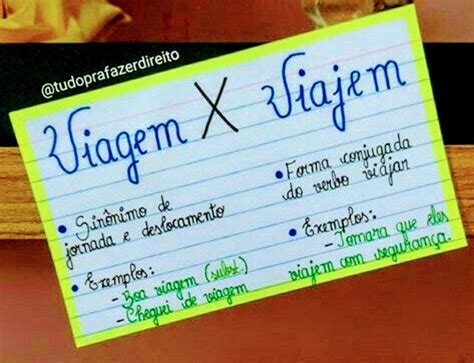 @tudoprafazerdireito
Viagem X Viajem
• Sinônimo de
jornada e deslocamento
• Exemplos:
- Boa viagem (subst.)
- Cheguei de viagem
• Forma conjugada
do verbo viajar
• Exemplos:
- Tomara que eles
viajem com segurança.